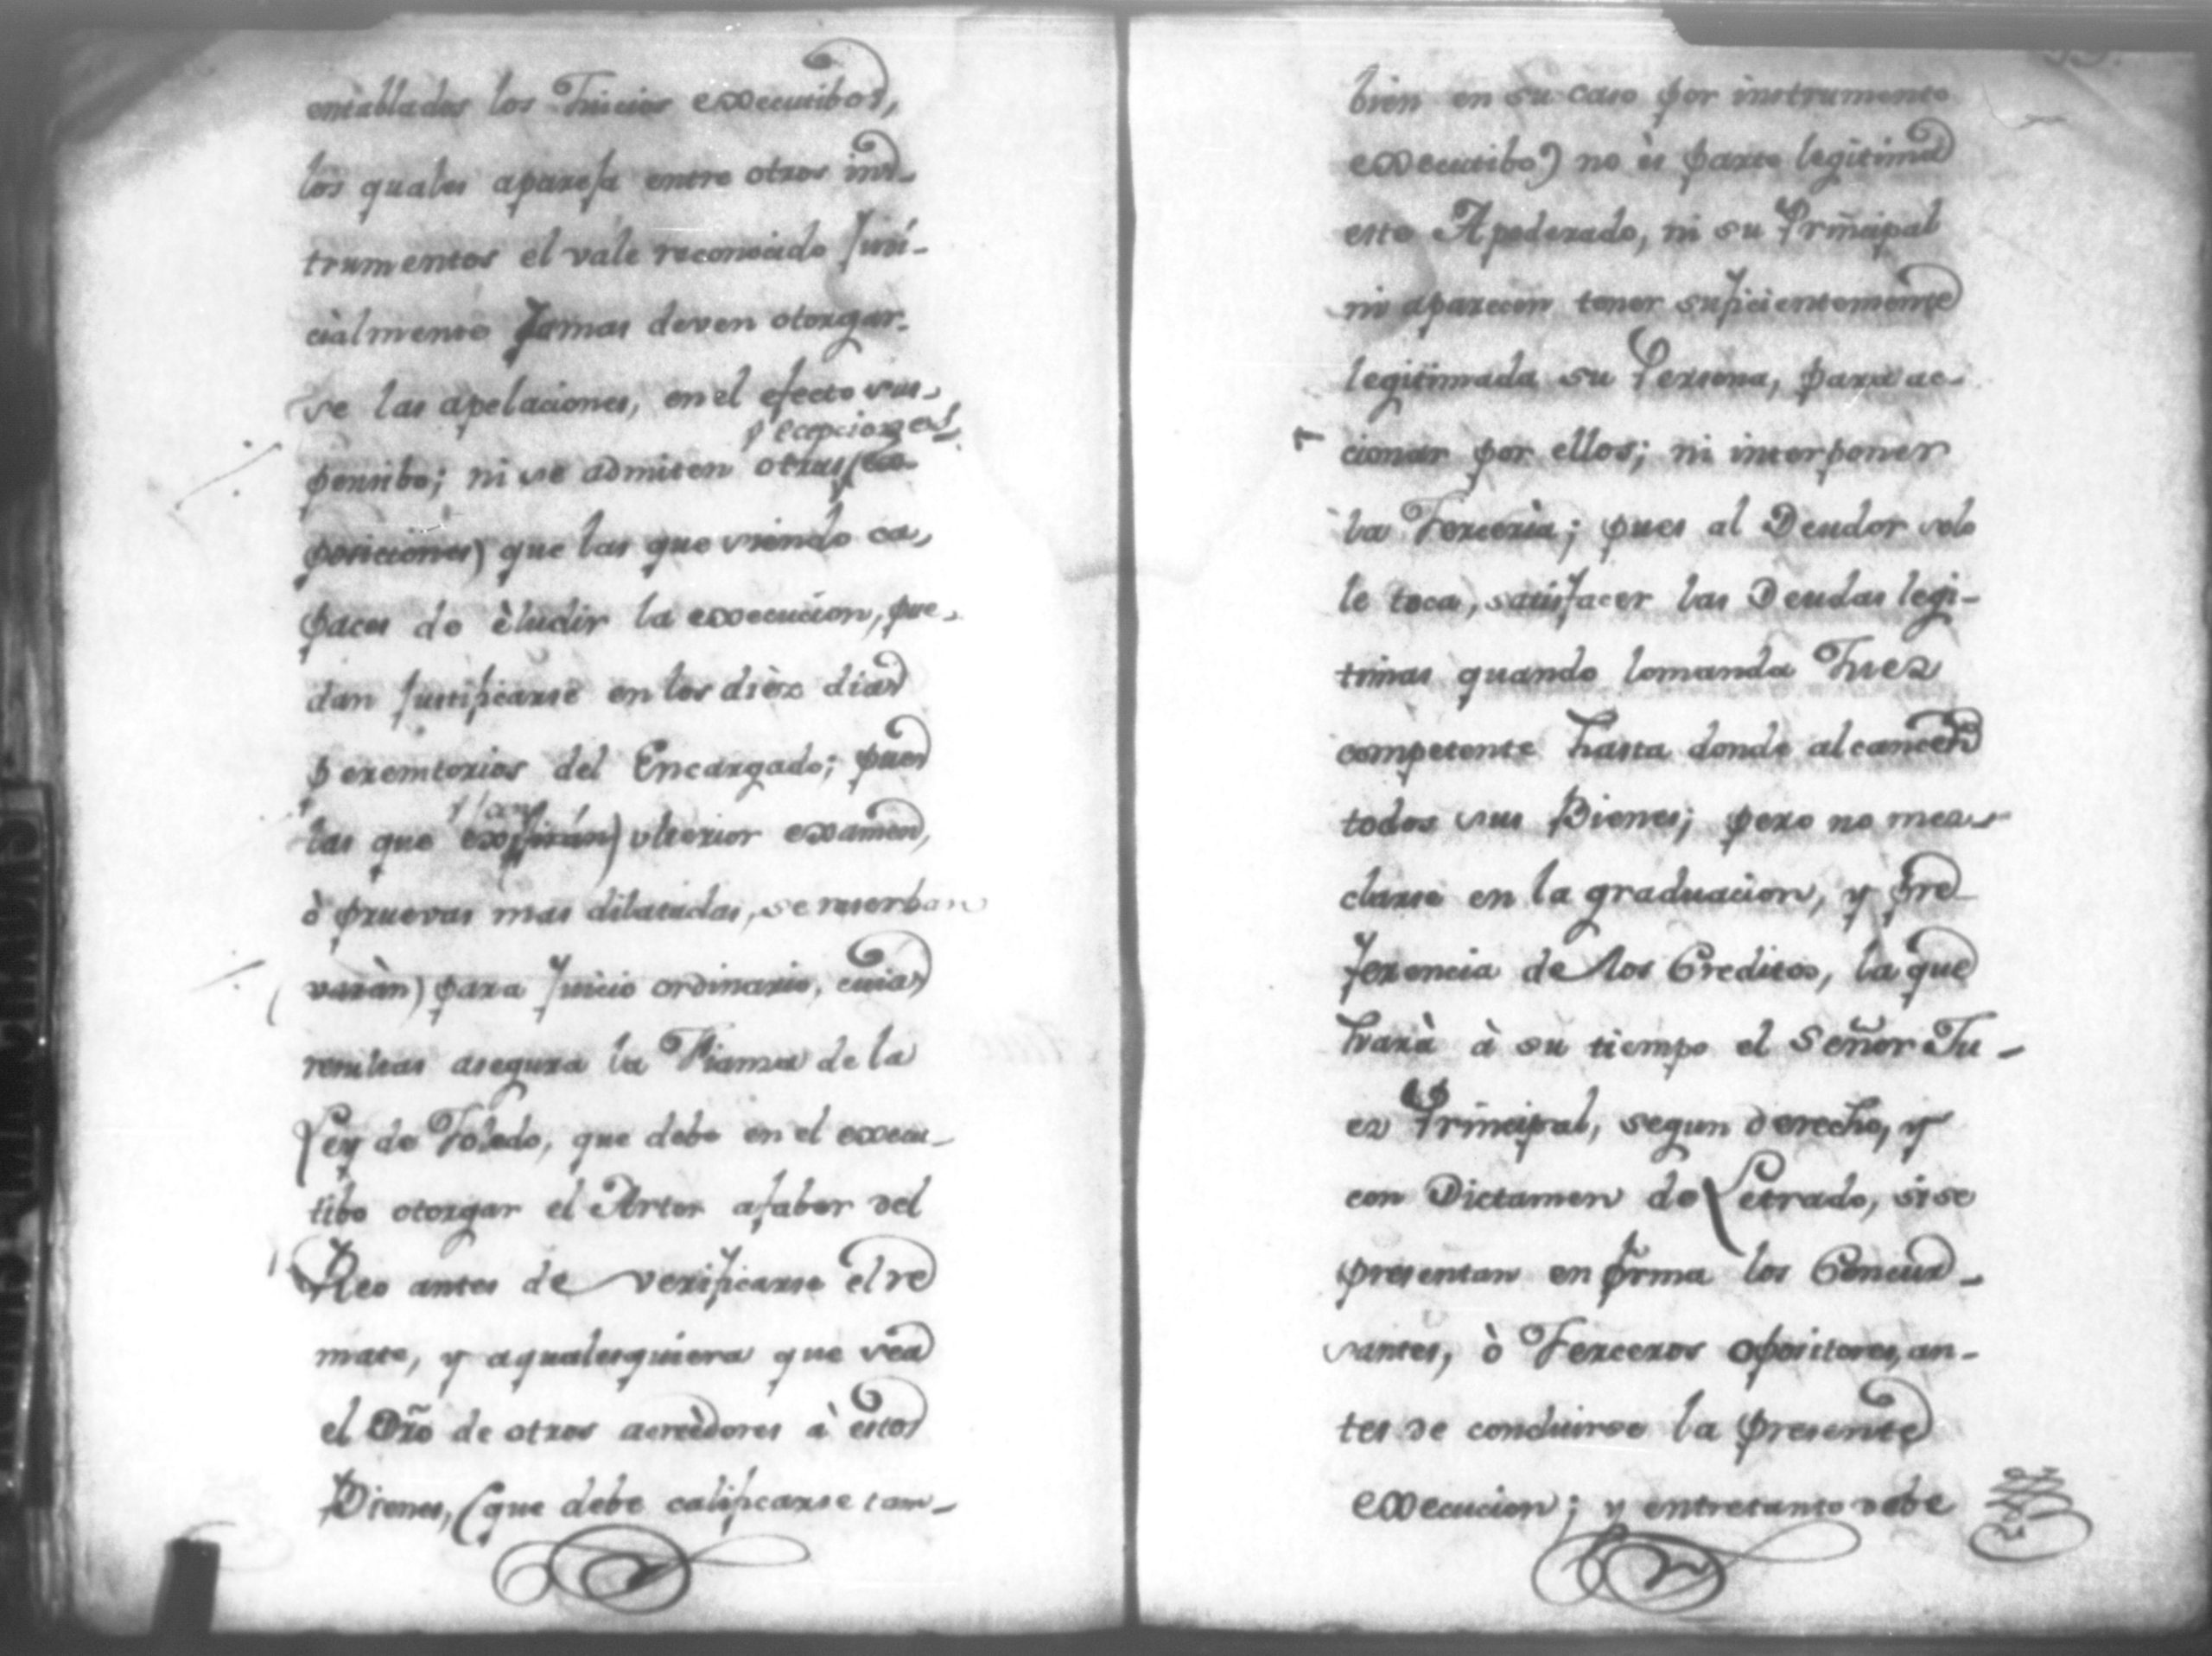 entablados los Juicios execcutibos,
los quales aparesa entre otros ins-
trumentos el vale reconocido Juri-
cialmente Jamas deven otorgar-
se las apelaciones, en el efecto sus-
ecepciones
pensibo; ni se admiten otras (ex-
posiciones) que las que siendo ca-
paces de èludir la execucion, pue-
dan justificarse en los dièz dias
peremtorios del Encargado; pues
las que ulterior examen,
ò pruevas mas dilatadas, se reserban
(varàn) para Juicio ordinario, cuias
resultas asegura la Fianza de la
Ley de Toledo, que debe en el execu-
tibo otorgar el Actor afabor del
Reo antes de verificarse el re
mate, y aqualesquiera que sea
el Dro de otros acreèdores à estos
Bienes, (que debe calificarse tam-
bien en su caso por instrumento
execcutibo) no ès parte legitima
este Apoderado, ni su Prinãipal
ni aparecen tener suficientemente
legitimada su Persona, para ac-
cionar por ellos; ni interponer
la Terceria; pues al Deudor solo
le toca, satisfacer las Deudas legi-
timas quando lomanda Juez
competente hasta donde alcancen
todos sus Bienes; pero no mez-
clarse en la graduacion, y pre
ferencia de los Creditos, la que
harà à su tiempo el Señor Ju-
ez Principal, segun derecho, y
con Dictamen de Letrado, si se
presentan en forma los Concur-
santes, ò Terceros opositores, an-
tes de concluirse la presente
execucion; y entretanto debe